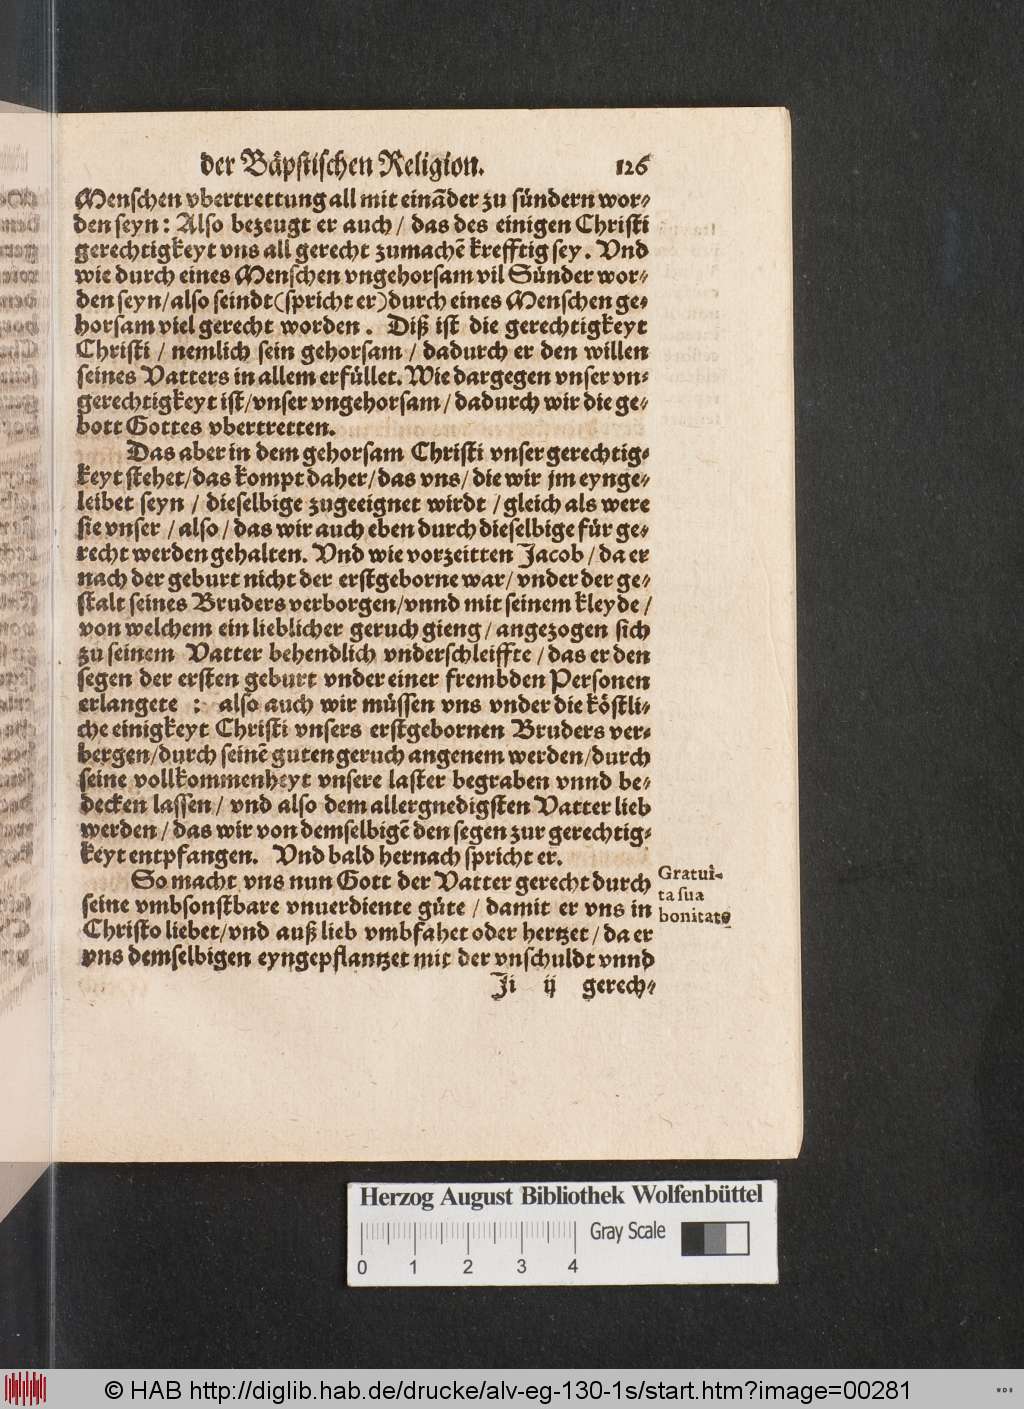 der Bäpstischen Religion. 126
Menschen vbertrettung all mit einãder zu sündern wor-
den seyn: Also bezeugt er auch / das des einigen Christi
gerechtigkeyt vns all gerecht zumachẽ krefftig sey. Vnd
wie durch eines Menschen vngehorsam vil Sünder wor-
den seyn/also seindt (spricht er) durch eines Menschen ge-
horsam viel gerecht worden. Diß ist die gerechtigkeyt
Christi / nemlich sein gehorsam / dadurch er den willen
seines Vatters in allem erfüllet. Wie dargegen vnser vn-
gerechtigkeyt ist/vnser vngehorsam/ dadurch wir die ge-
bott Gottes vbertretten.
Das aber in dem gehorsam Christi vnser gerechtig-
keyt stehet/das kompt daher/das vns/ die wir jm eynge-
leibet seyn / dieselbige zugeeignet wirdt / gleich als were
sie vnser / also / das wir auch eben durch dieselbige für ge-
recht werden gehalten. Vnd wie vorzeitten Jacob / da er
nach der geburt nicht der erstgeborne war/ vnder der ge-
stalt seines Bruders verborgen/vnnd mit seinem kleyde /
von welchem ein lieblicher geruch gieng / angezogen sich
zu seinem Vatter behendlich vnderschleiffte / das er den
segen der ersten geburt vnder einer frembden Personen
erlangete : also auch wir müssen vns vnder die köstli-
che einigkeyt Christi vnsers erstgebornen Bruders ver-
bergen/durch seinẽ guten geruch angenem werden/durch
seine vollkommenheyt vnsere laster begraben vnnd be-
decken lassen/ vnd also dem allergnedigsten Vatter lieb
werden / das wir von demselbigẽ den segen zur gerechtig-
keyt entpfangen. Vnd bald hernach spricht er.
So macht vns nun Gott der Vatter gerecht durch
seine vmbsonstbare vnuerdiente güte / damit er vns in
Christo liebet/vnd auß lieb vmbfahet oder hertzet / da er
vns demselbigen eyngepflantzet mit der vnschuldt vnnd
Ji ij gerech-
Gratui-
ta sua
bonitate
Herzog August Bibliothek Wolfenbüttel
Gray Scale
0 1 2 3 4
© HAB http://diglib.hab.de/drucke/alv-eg-130-1s/start.htm?image=00281